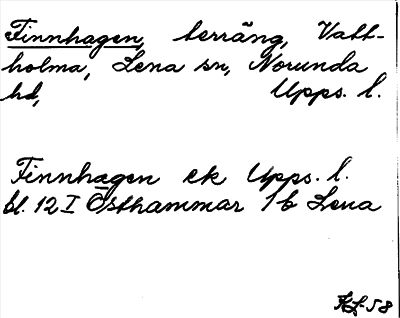 Finnhagen, terräng, Vatt-
holma, Lena sn, Norunda
hd, Upps. l.
Finnhagen ek Upps. l.
bl. 12 I Östhammar 1 b Lena
HL-58